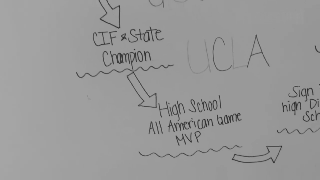 CIF & State
Champion
UCLA
High School
All American Game
MVP
Sign
high Di
Sch